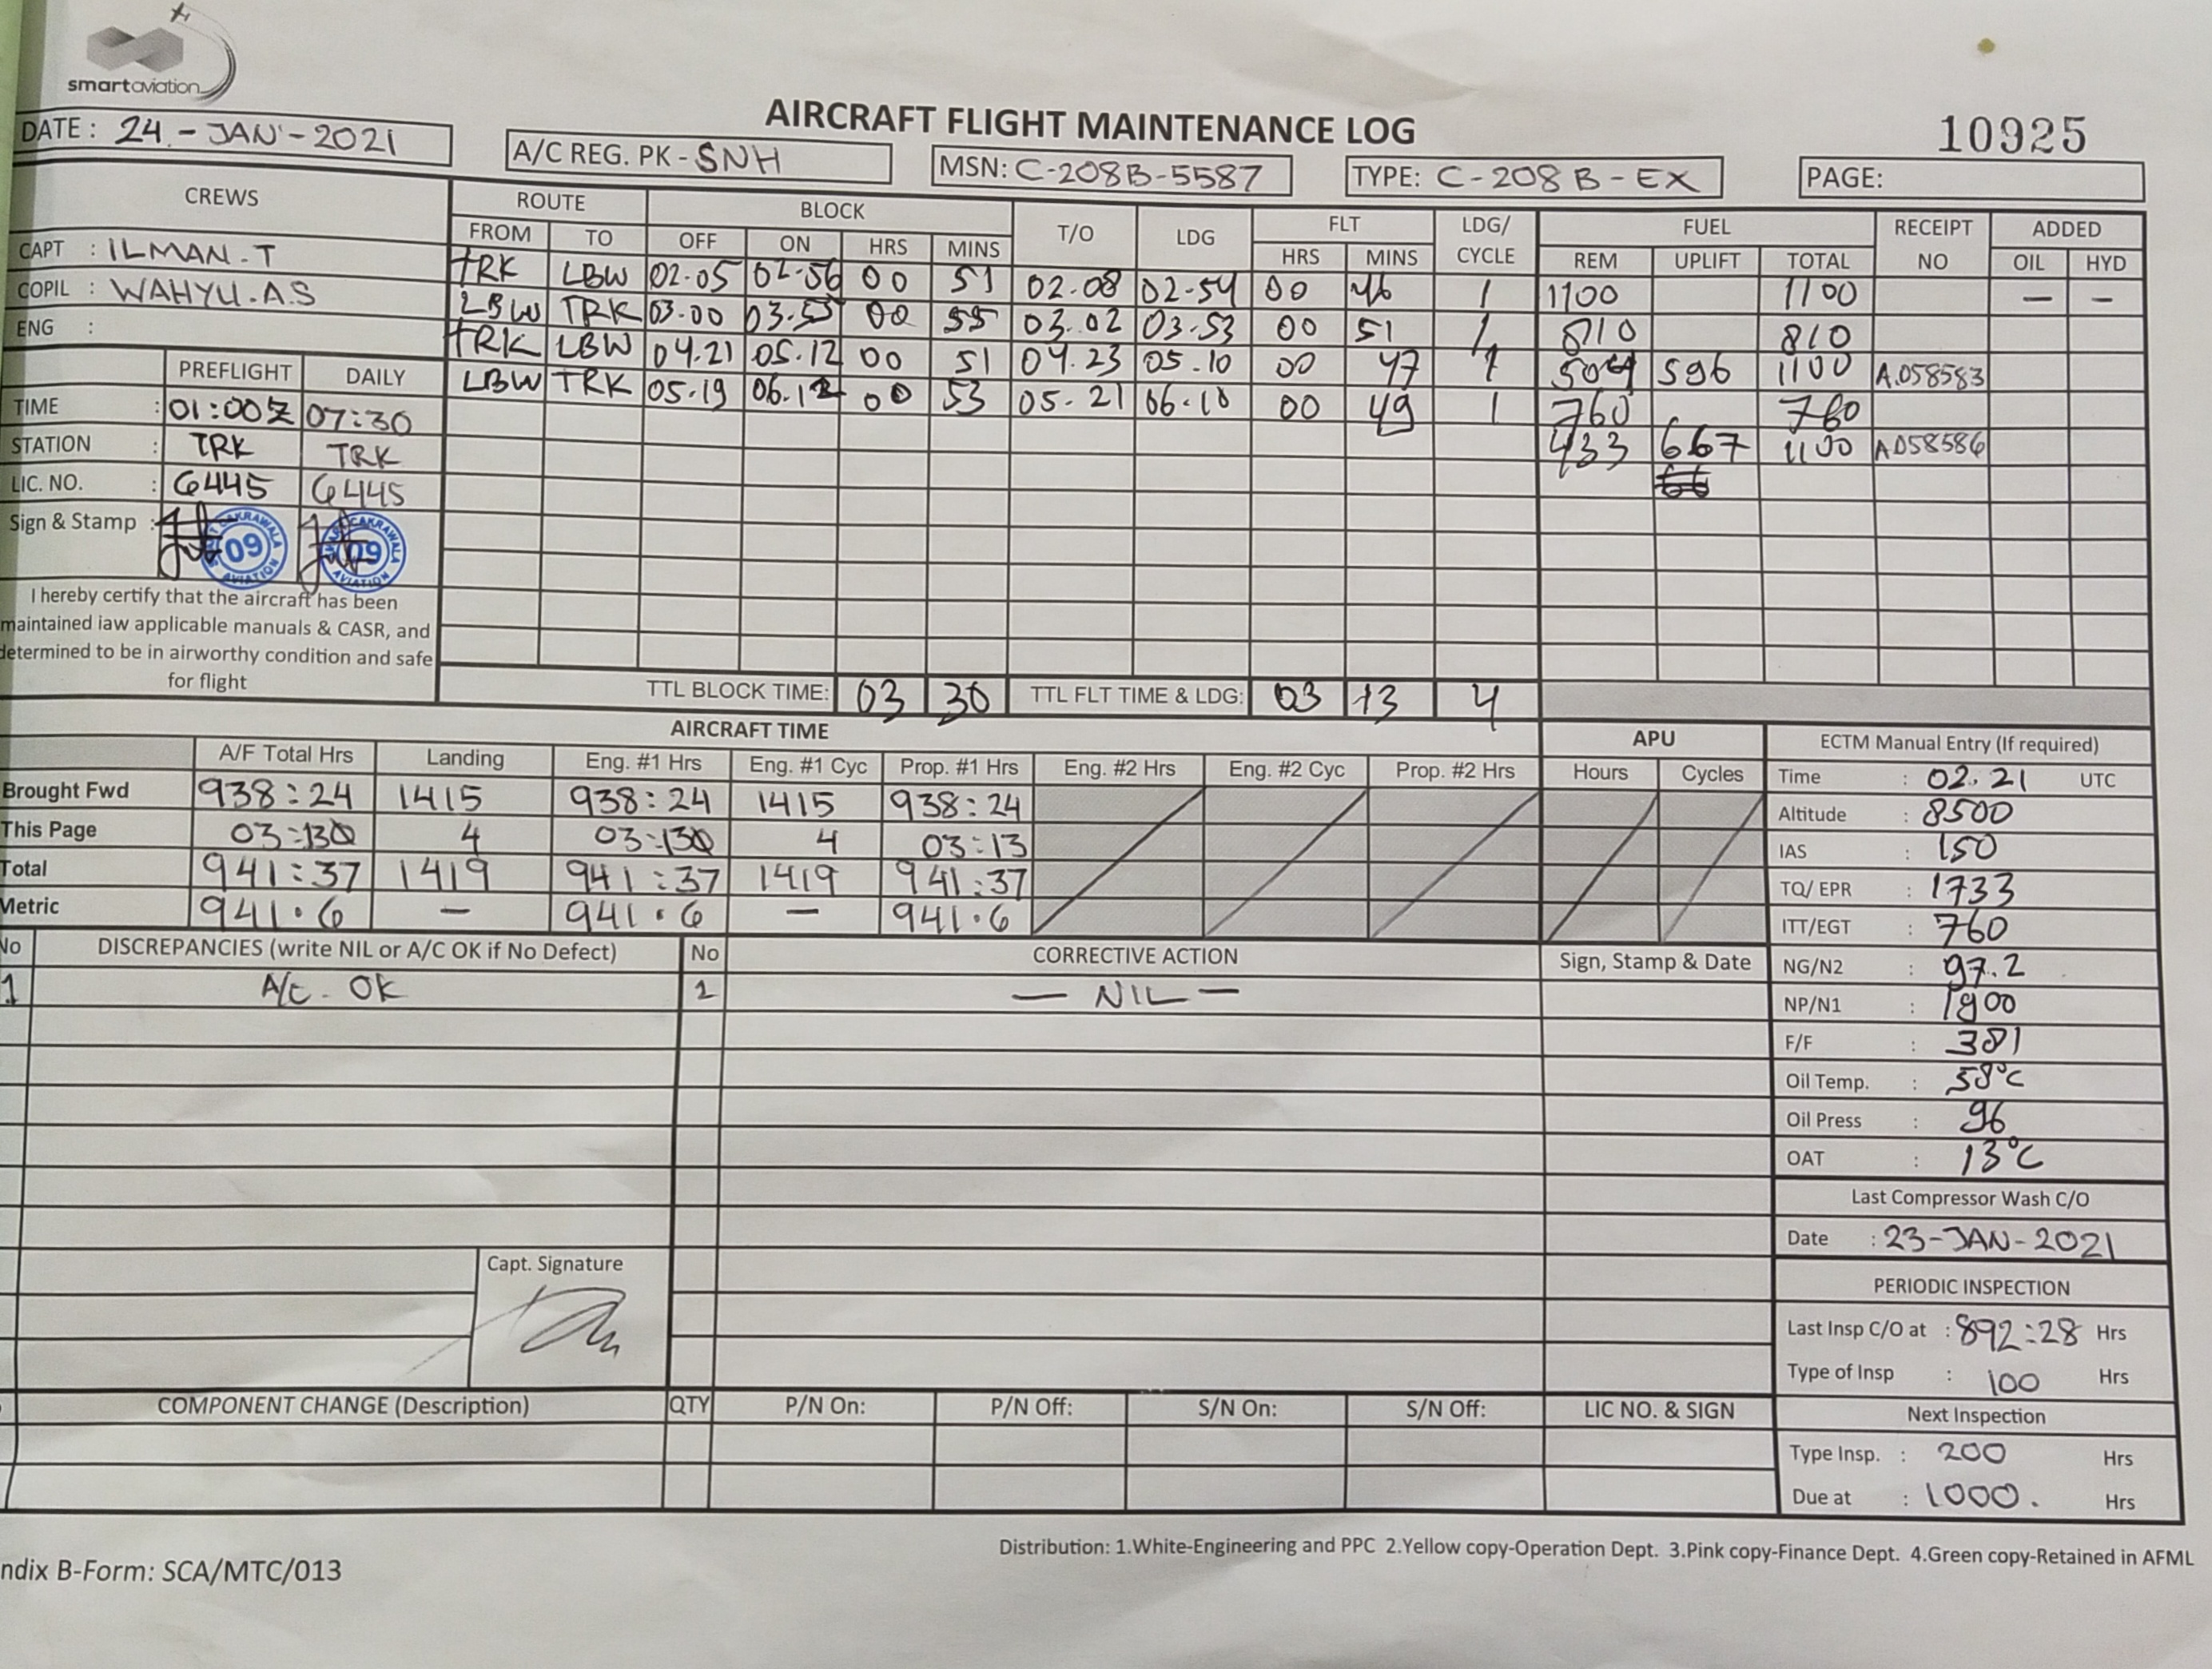 smartaviation
AIRCRAFT FLIGHT MAINTENANCE LOG
10925
DATE : 24 - JAN - 2021
A/C REG. PK - SNH
MSN: C-208B-5587
TYPE: C-208 B - EX
PAGE:
CREWS ROUTE BLOCK T/O LDG FLT LDG/ CYCLE FUEL RECEIPT NO ADDED
FROM TO OFF ON HRS MINS HRS MINS REM UPLIFT TOTAL OIL HYD
CAPT : ILMAN . T
COPIL : WAHYU . A.S
ENG :
TRK LBW 02.05 02.56 00 51 02.08 02.54 00 46 1 1100 1100 — —
LBW TRK 03.00 03.55 00 55 03.02 03.53 00 51 1 810 810
TRK LBW 04.21 05.12 00 51 04.23 05.10 00 47 1 504 596 1100 A.058583
LBW TRK 05.19 06.12 00 53 05.21 06.10 00 49 1 760 760
433 667 1100 A058586
PREFLIGHT DAILY
TIME : 01:00Z 07:30
STATION : TRK TRK
LIC. NO. : 6445 6445
Sign & Stamp :
CAKRAWALA 09 AVIATION
CAKRAWALA 09 AVIATION
I hereby certify that the aircraft has been
maintained iaw applicable manuals & CASR, and
determined to be in airworthy condition and safe
for flight
TTL BLOCK TIME: 03 30 TTL FLT TIME & LDG: 03 13 4
AIRCRAFT TIME
A/F Total Hrs Landing Eng. #1 Hrs Eng. #1 Cyc Prop. #1 Hrs Eng. #2 Hrs Eng. #2 Cyc Prop. #2 Hrs
Brought Fwd 938:24 1415 938:24 1415 938:24
This Page 03:13 4 03:13 4 03:13
Total 941:37 1419 941:37 1419 941:37
Metric 941.6 — 941.6 — 941.6
APU
Hours Cycles
ECTM Manual Entry (If required)
Time : 02.21 UTC
Altitude : 8500
IAS : 150
TQ/ EPR : 1733
ITT/EGT : 760
NG/N2 : 97.2
NP/N1 : 1900
F/F : 381
Oil Temp. : 58°C
Oil Press : 96
OAT : 13°C
Last Compressor Wash C/O
Date : 23-JAN-2021
PERIODIC INSPECTION
Last Insp C/O at : 892:28 Hrs
Type of Insp : 100 Hrs
Next Inspection
Type Insp. : 200 Hrs
Due at : 1000. Hrs
No DISCREPANCIES (write NIL or A/C OK if No Defect) No CORRECTIVE ACTION Sign, Stamp & Date
1 A/C - OK 1 — NIL —
Capt. Signature
COMPONENT CHANGE (Description) QTY P/N On: P/N Off: S/N On: S/N Off: LIC NO. & SIGN
Distribution: 1.White-Engineering and PPC 2.Yellow copy-Operation Dept. 3.Pink copy-Finance Dept. 4.Green copy-Retained in AFML
ndix B-Form: SCA/MTC/013